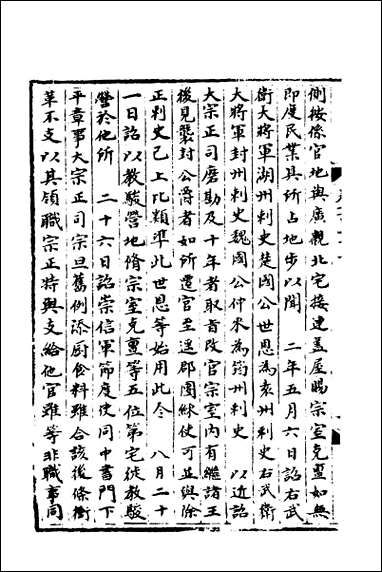 側按係官地與廣親北宅接連蓋屋賜宗室克亶如無
即度民業具所占地步以聞　二年五月六日詔右武
衛大將軍湖州刺史楚國公世恩為袁州刺史右武衛
大將軍封州刺史魏國公仲來為筠州刺史　以近詔
大宗正司磨勘及十年者取首改官宗室内有繼諸王
後見襲封公爵者如所遷官至遥郡團練使可並與除
正刺史已上比類準此世恩等始用此令　八月二十
一日詔以教駿營地脩宗室克亶等五位第宅徙教駿
營於他所　二十六日詔崇信軍節度使同中書門下
平章事大宗正司宗旦舊例添厨食料雖合該後條衝
革不支以其領職宗正特與支給他官雖等非職事同